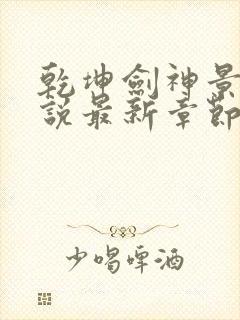 乾坤劍神景
說最新章節
少喝啤酒